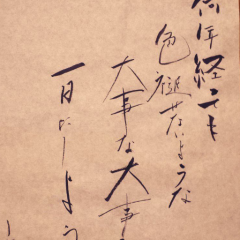 何年経っても
色褪せないような
大事な大事
一日にしよう